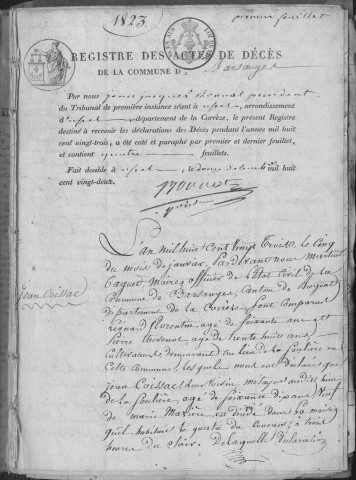 1823
premier feuillet
REGISTRE DES ACTES DE DÉCÈS
DE LA COMMUNE D Barsanges
Par nous Jean Jacques président
du Tribunal de première instance séant à ussel, arrondissement
d'ussel, département de la Corrèze, le présent Registre
destiné à recevoir les déclarations des Décès pendant l'année mil huit
cent vingt-trois, a été coté et paraphé par premier et dernier feuillet,
et contient quatre feuillets.
Fait double à ussel, le douze mil huit
cent vingt-deux.
Jean Coissac
L'an mil huit Cent vingt Trois, le Cinq
du mois de janvier, Pardevant nous Martial
Maire, officier de l'état Civil de la
Commune de Barsanges, Canton de Bugeat
departement de la Corrèze Sont Comparus
Leonard Florentin agé de soixante ans et
Pierre agé de trente huit ans
Cultivateurs demeurant au lieu de la Soulière en
Cette Commune, lesquels nous ont déclarés que
Jean Coissac metayer audit lieu
de la Soulière, agé de soixante dix Neuf
de Marie est décédé dans la maison
qu'il habitait le quatre du Courant, à trois
heures du Soir. De laquelle Déclaration